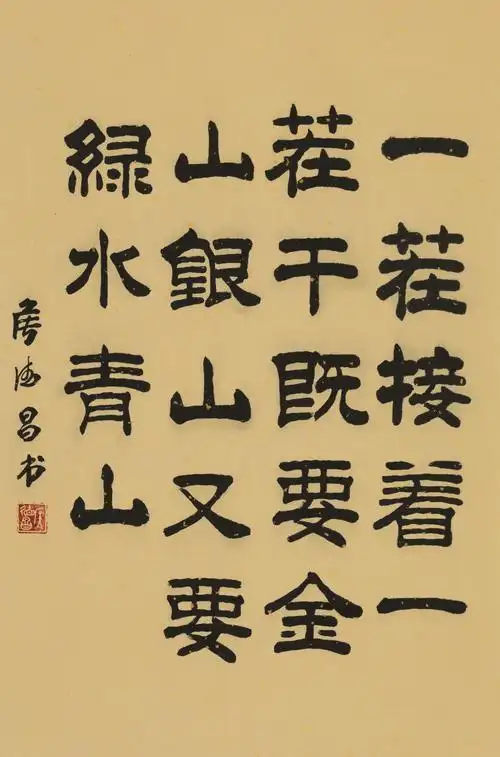 一茬接着一
茬干既要金
山銀山又要
緑水青山
侯德昌书